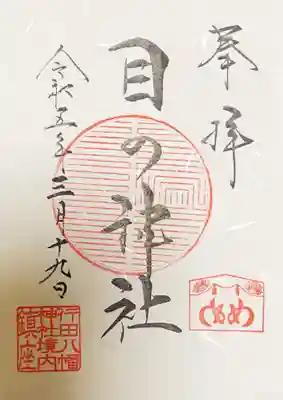 奉拝
目の神社
令和五年三月十九日
行田八幡
神社境内
鎮座
め